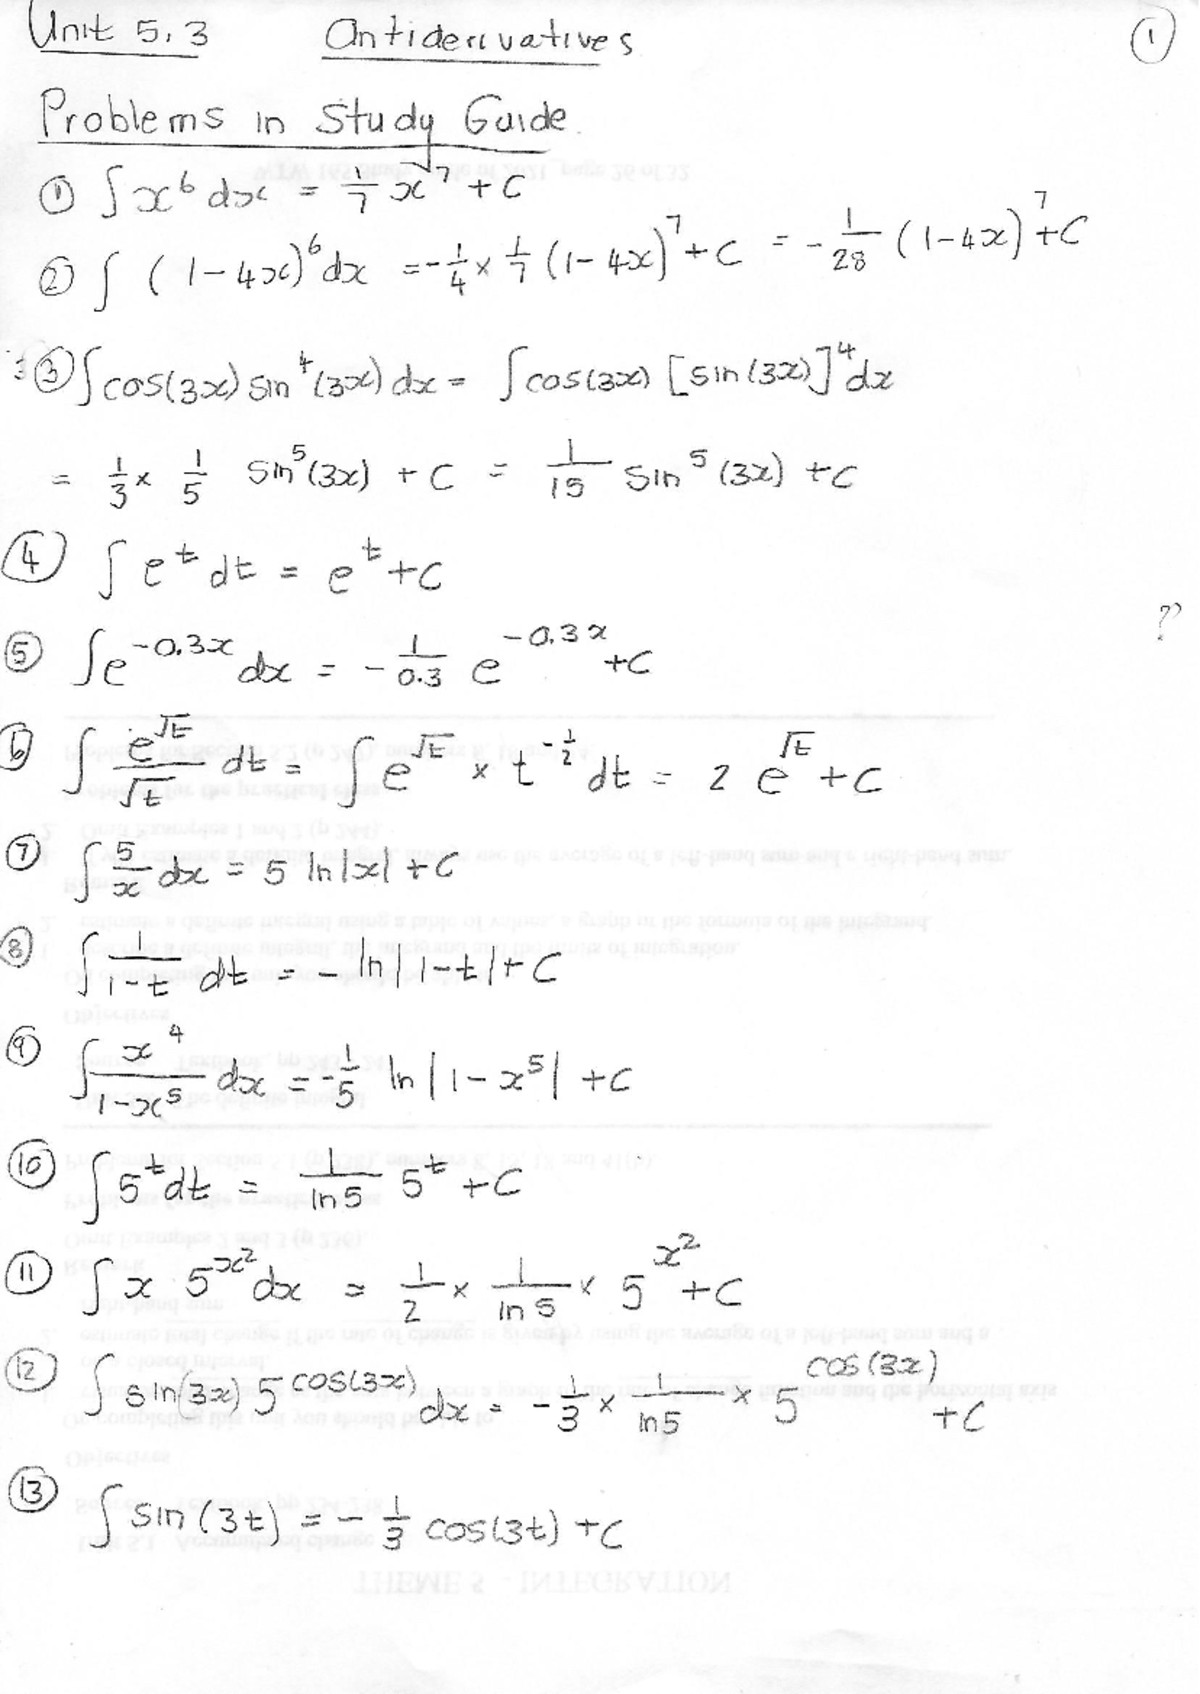 Unit 5.3 Antiderivatives ①
Problems in Study Guide.
① ∫ x⁶ dx = 1/7 x⁷ + C
② ∫ (1-4x)⁶ dx = -1/4 × 1/7 (1-4x)⁷ + C = -1/28 (1-4x)⁷ + C
③ ∫ cos(3x) sin⁴(3x) dx = ∫ cos(3x) [sin(3x)]⁴ dx
= 1/3 × 1/5 sin⁵(3x) + C = 1/15 sin⁵(3x) + C
④ ∫ e^t dt = e^t + C
⑤ ∫ e^(-0.3x) dx = -1/0.3 e^(-0.3x) + C
⑥ ∫ e^(√t)/√t dt = ∫ e^(√t) × t^(-1/2) dt = 2 e^(√t) + C
⑦ ∫ 5/x dx = 5 ln|x| + C
⑧ ∫ 1/(1-t) dt = - ln|1-t| + C
⑨ ∫ x⁴/(1-x⁵) dx = -1/5 ln|1-x⁵| + C
⑩ ∫ 5^t dt = 1/ln5 5^t + C
⑪ ∫ x 5^(x²) dx = 1/2 × 1/ln5 × 5^(x²) + C
⑫ ∫ sin(3x) 5^(cos(3x)) dx = -1/3 × 1/ln5 × 5^(cos(3x)) + C
⑬ ∫ sin(3t) = -1/3 cos(3t) + C